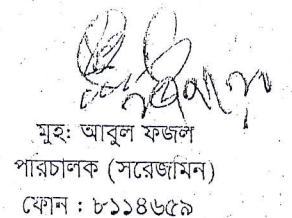 মুহ: আবুল ফজল
পরিচালক (সরেজমিন)
ফোন : ৮১১৪৬৫৯